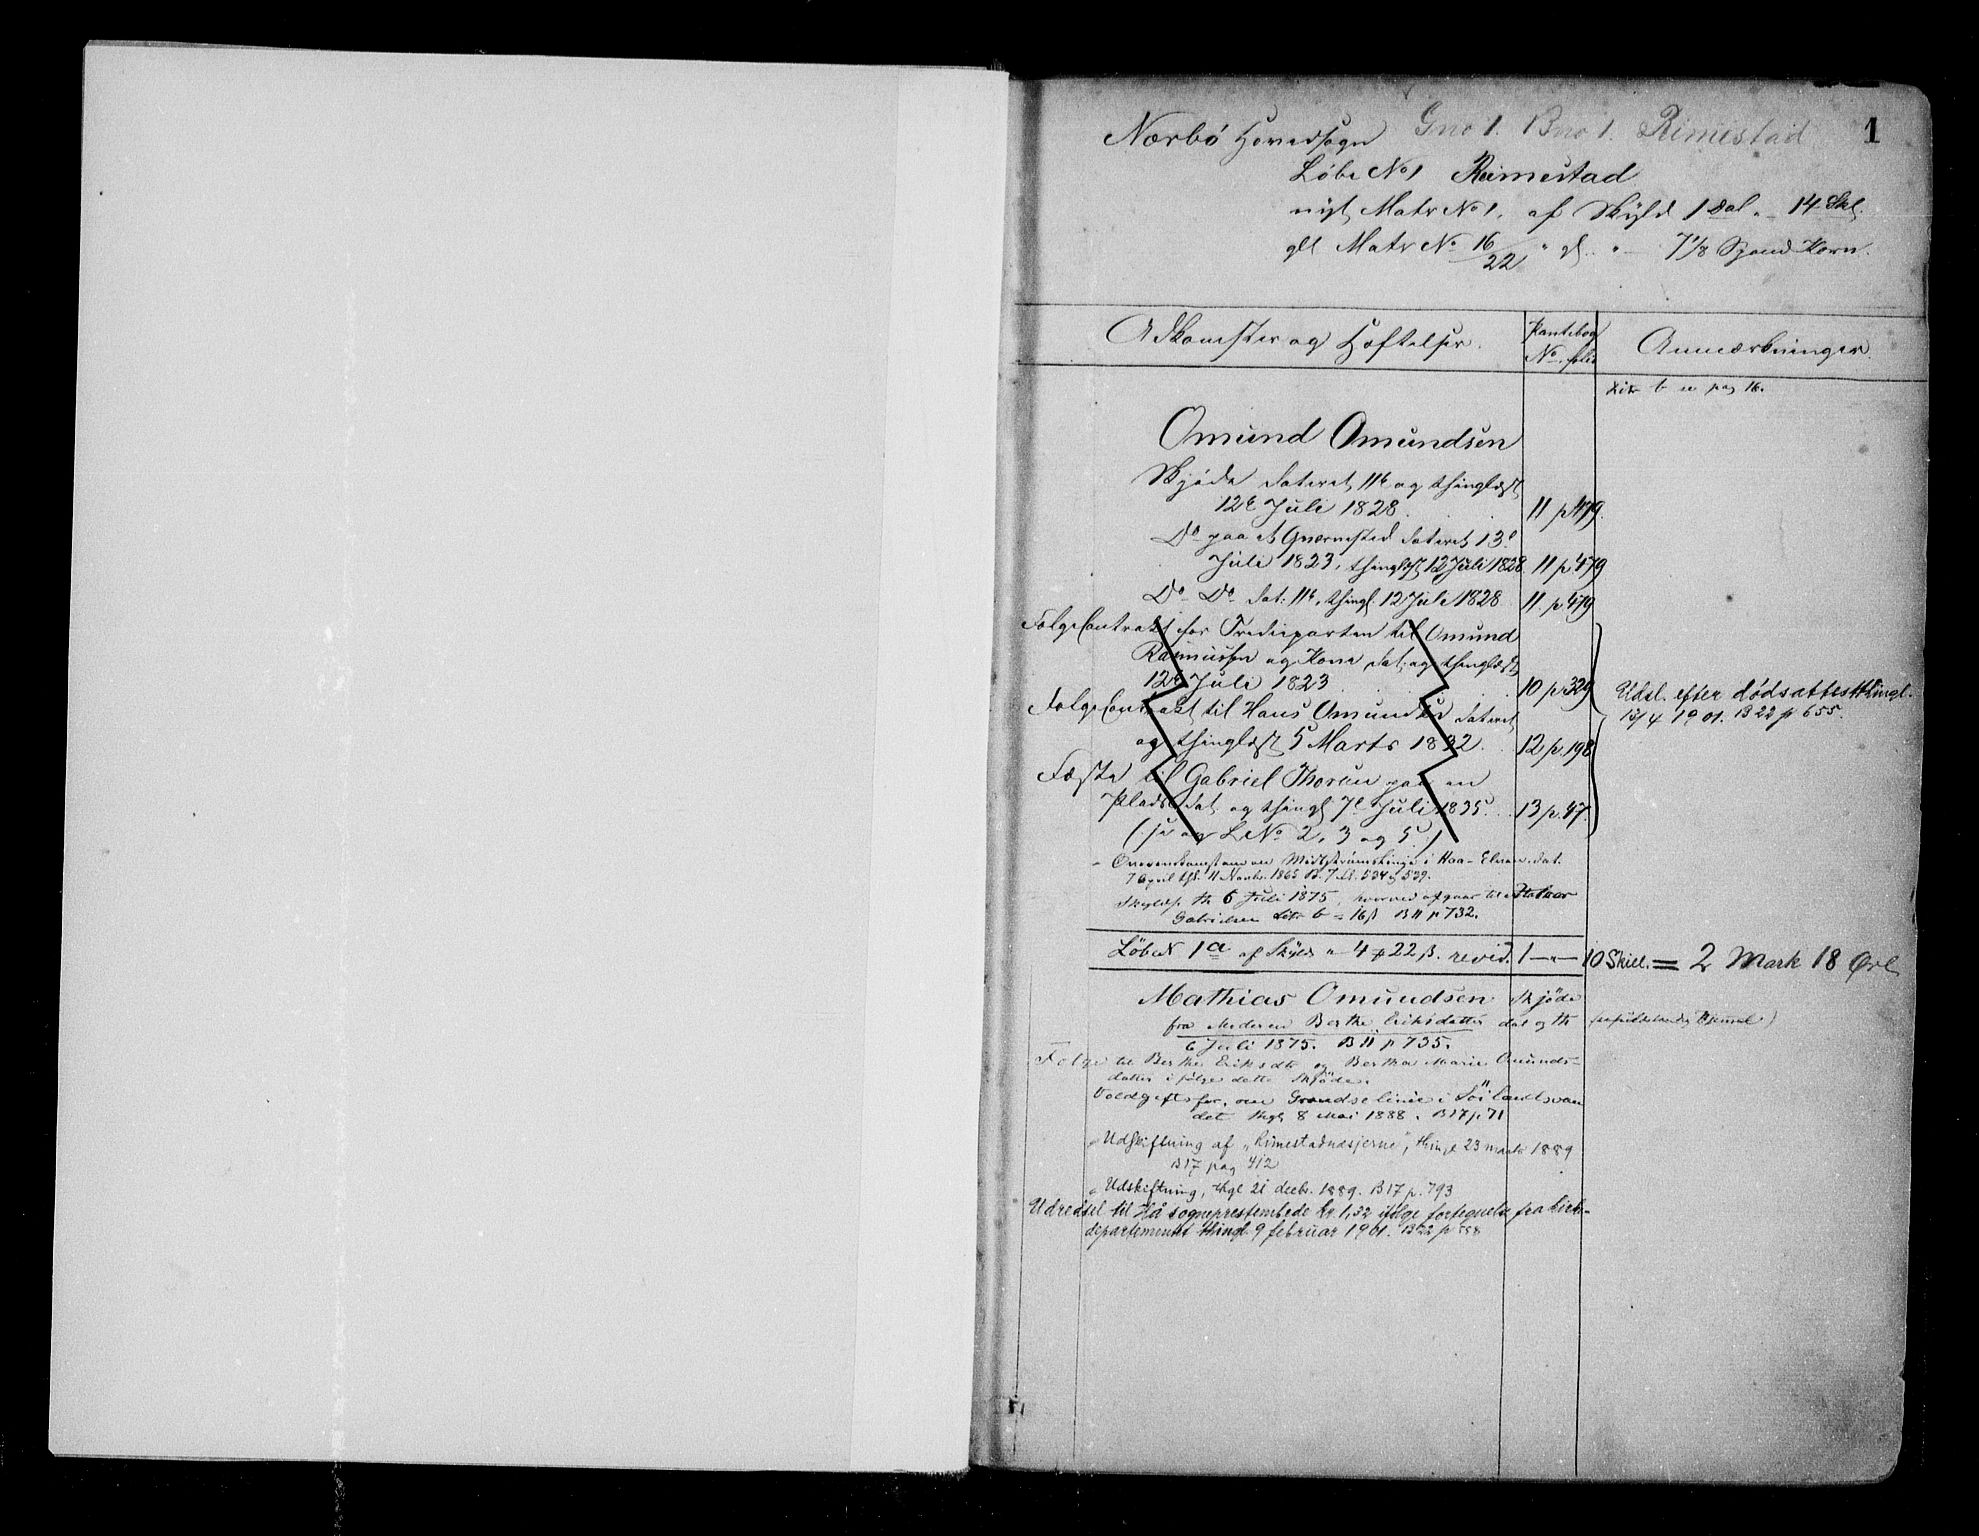 Gno 1. Bno 1. Rimestad 1
Nærbö Hovedsogn
Löbe No 1 Rimestad
nyt Matr No 1. af Skyld 1 Dal. „ 14 Skl.
glt Matr No 16/22 „ d. „ 7 1/8 Spand Korn.
Adkomster og Hæftelser. Pantebog No. folio Anmærkninger.
Litr b se pag 16.
Omund Omundsen
Skjöde dateret 11te og thinglæst
12te Juli 1828. 11 p 479.
Do paa et Qværnested dateret 13e
Juli 1823, thinglæst 12 Juli 1828 11 p 479
Do Do dat: 11te, thingl. 12 Juli 1828 11 p 479
Følge Contrakt for Trediparten til Omund
Rasmussen og Kone dat. og thinglæst
12te Juli 1823 10 p 329
Udsl. efter dødsattest thingl.
13/4 1901. B 22 p 655.
Følge Contrakt til Hans Omundsen dateret
og thinglæst 5 Marts 1832. 12 p. 198
Fæste til Gabriel Thorsen paa en
Plads dat. og thingl 7e Juli 1835. 13 p. 47.
(se og L No 2, 3 og 5)
Overenskomst om en Midtströmslinje i Haa-Elven dat.
7 April thl. 11 Novbr. 1865 B. 7 fl. 534 og 539.
Skyldsk. th 6 Juli 1875, hvorved afgaar til
Gabrielsen Litr b = 16 β B 11 p 732.
Löbe N 1a af Skyld „ 4 # 22 β. revid. 1 – „ – 10 Skill. = 2 Mark 18 Øre
Mathias Omundsen Skjöde
fra Moderen Berthe Eriksdatter dat og th
6 Juli 1875. B 11 p 735.
Følge til Berthe Eriksdtr og Bertha Marie Omunds-
datter i følge dette Skjöde.
Voldgiftsfor. om Grændselinie i Söilandsvan
det thgl 8 Mai 1888. B 17 p. 71
„ Udskiftning af „Rimestadnæsjerne”, thingl 23 marts 1889
B 17 pag 412
„ Udskiftning, thgl 21 decbr. 1889. B 17 p. 793
Udredsel til Hå sogneprestembede kr 1,32 ifølge fortegnelse fra kirke-
departementet thingl. 9 februar 1901. B 22 p 588